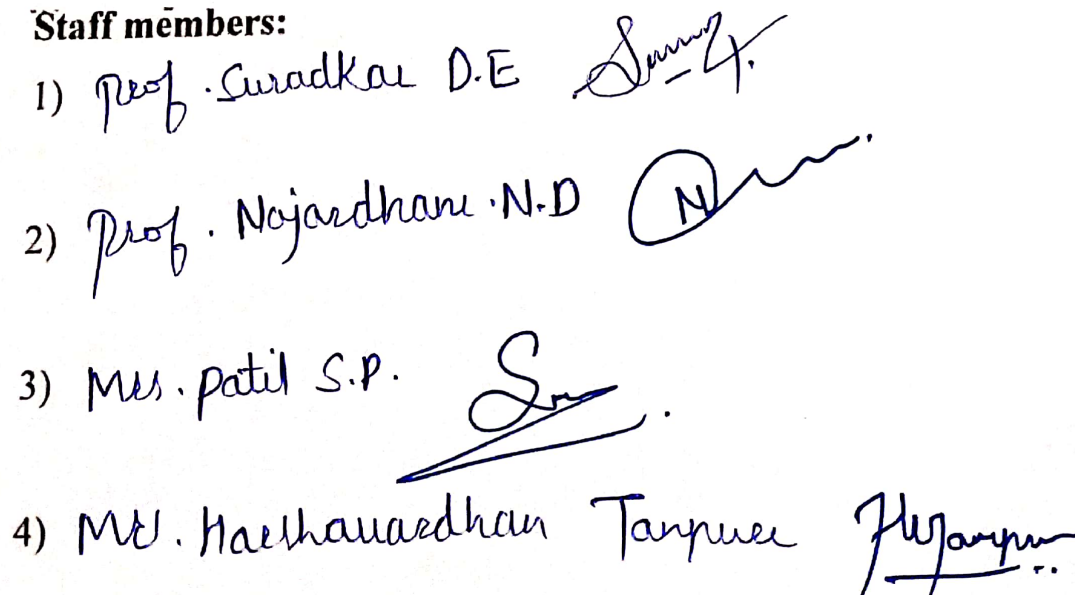 Staff members:
1) Prof. Suradkar D.E
2) Prof. Najardhane .N.D
3) Mrs. Patil S.P.
4) Mr. Harshavardhan Tanpure